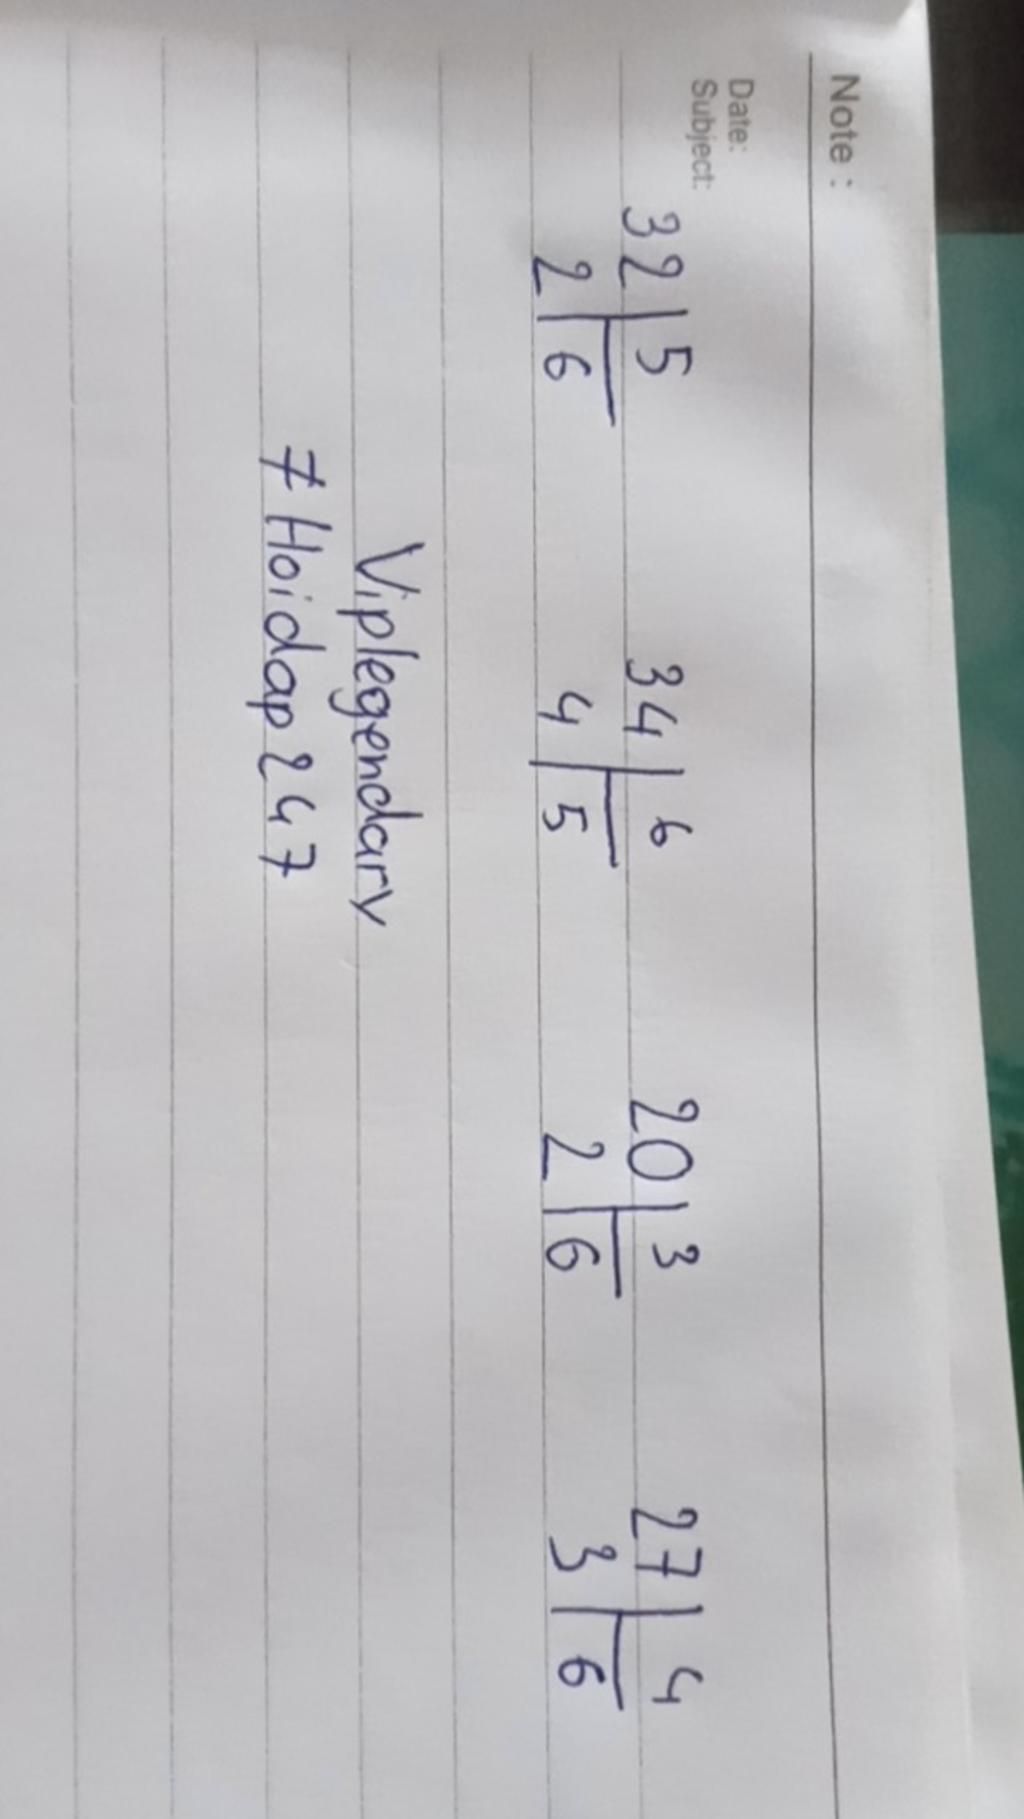 Note :
Date:
Subject:
32 | 5 34 | 6 20 | 3 27 | 4
2 | 6 4 | 5 2 | 6 3 | 6
Viplegendary
7 Hoidap247